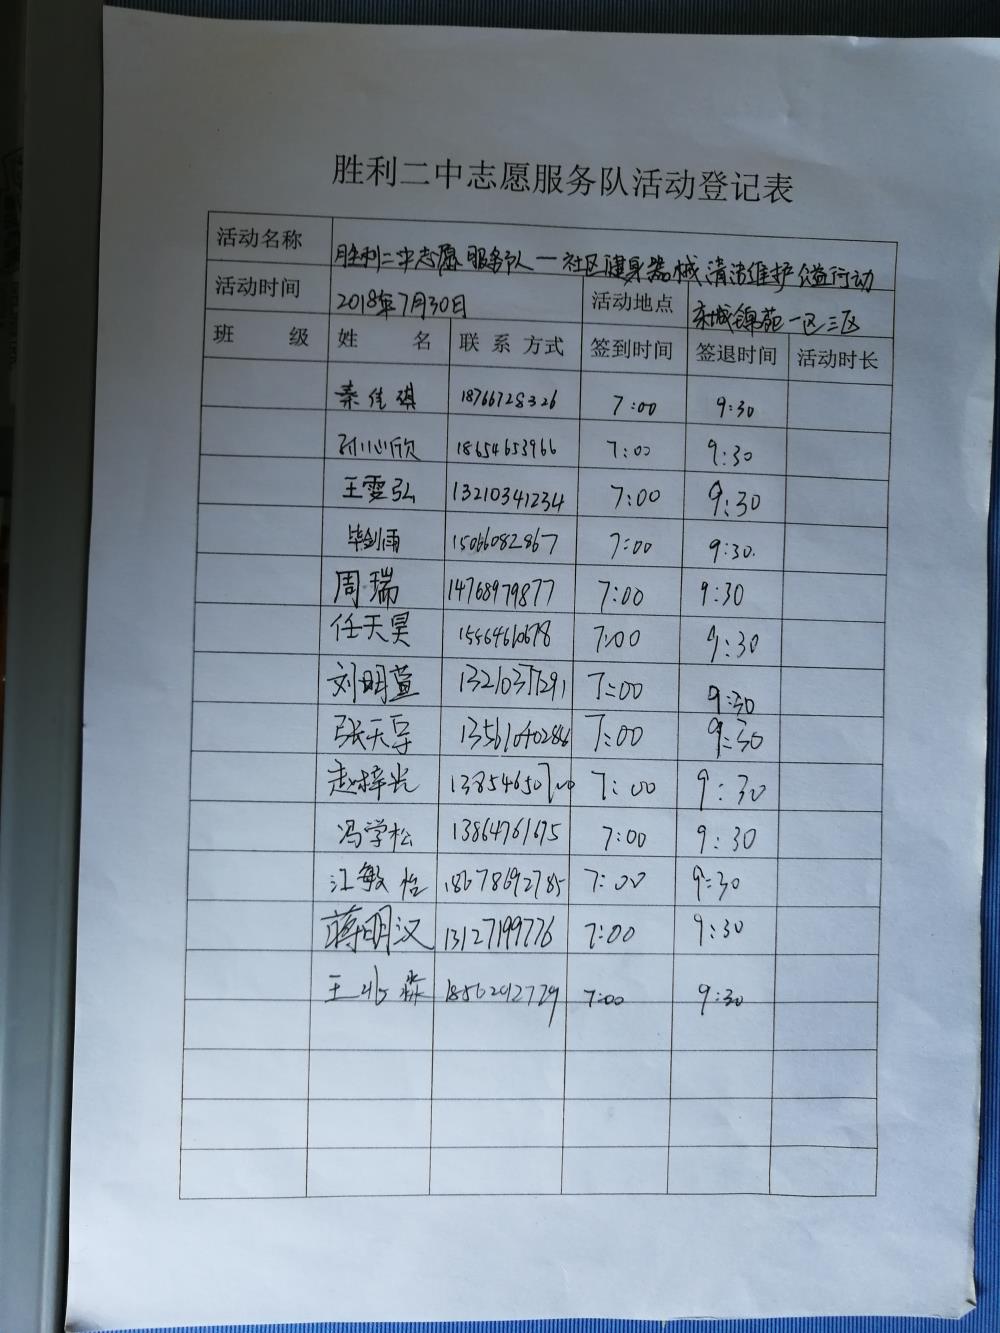 胜利二中志愿服务队活动登记表
活动名称 胜利二中志愿服务队一社区健身器械清洁维护公益行动
活动时间 2018年7月30日 活动地点 东城锦苑一区三区
班 级 姓 名 联系方式 签到时间 签退时间 活动时长
秦佳琪 18766728326 7:00 9:30
孙心欣 18654653966 7:00 9:30
王雯弘 13210341234 7:00 9:30
毕剑雨 15066082867 7:00 9:30.
周瑞 14768979877 7:00 9:30
任天昊 15564610678 7:00 9:30
刘明萱 7:00 9:30
张天孚 7:00 9:30
赵梓光 7:00 9:30
冯学松 13864761675 7:00 9:30
江敏怡 18678692785 7:00 9:30
蒋明汉 13127199776 7:00 9:30
王兆森 18562092729 7:00 9:30